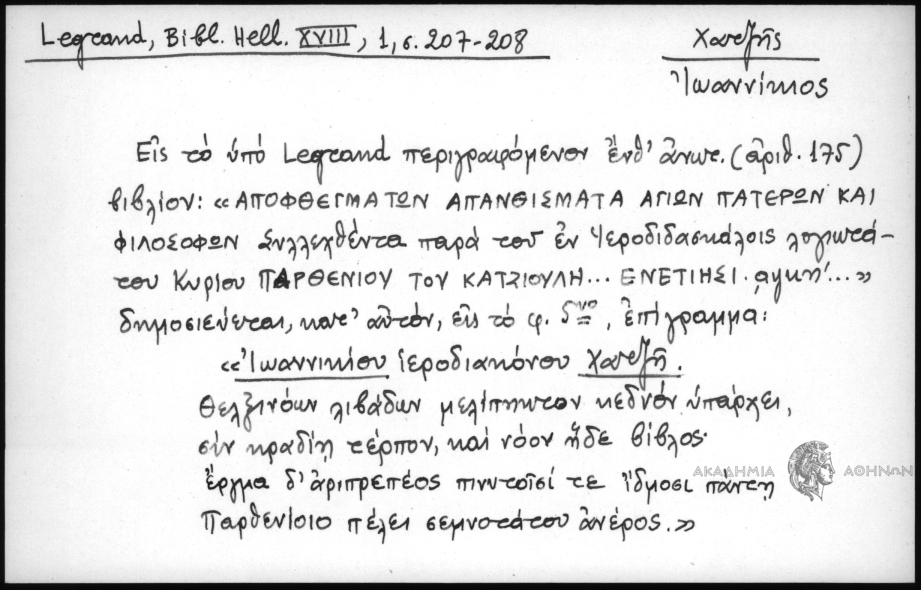 Legrand, Bibl. Hell. XVIII, 1, σ. 207-208
Χατζῆς
Ἰωαννίκιος
Εἰς τὸ ὑπὸ Legrand περιγραφόμενον ἔνθ' ἀνωτ. (ἀριθ. 175)
βιβλίον: «ΑΠΟΦΘΕΓΜΑΤΩΝ ΑΠΑΝΘΙΣΜΑΤΑ ΑΓΙΩΝ ΠΑΤΕΡΩΝ ΚΑΙ
ΦΙΛΟΣΟΦΩΝ Συλλεχθέντα παρὰ τοῦ ἐν Ἱεροδιδασκάλοις λογιωτά-
του Κυρίου ΠΑΡΘΕΝΙΟΥ ΤΟΥ ΚΑΤΖΙΟΥΛΗ... ΕΝΕΤΙΗΣΙ. ͵αψκη'...»
δημοσιεύεται, κατ' αὐτόν, εἰς τὸ φ. 5 νο, ἐπίγραμμα:
«Ἰωαννικίου ἱεροδιακόνου Χατζῆ.
Θελξινόων λιβάδων μελίπηκτον κεδνὸν ὑπάρχει,
σὶν κραδίῃ τέρπον, καὶ νόον ἥδε βίβλος·
ἔργμα δ' ἀριπρεπέος πινυτοῖσί τε ἴδμοσι πάντῃ
Παρθενίοιο πέλει σεμνοτάτου ἀνέρος.»
ΑΚΑΔΗΜΙΑ ΑΘΗΝΩΝ